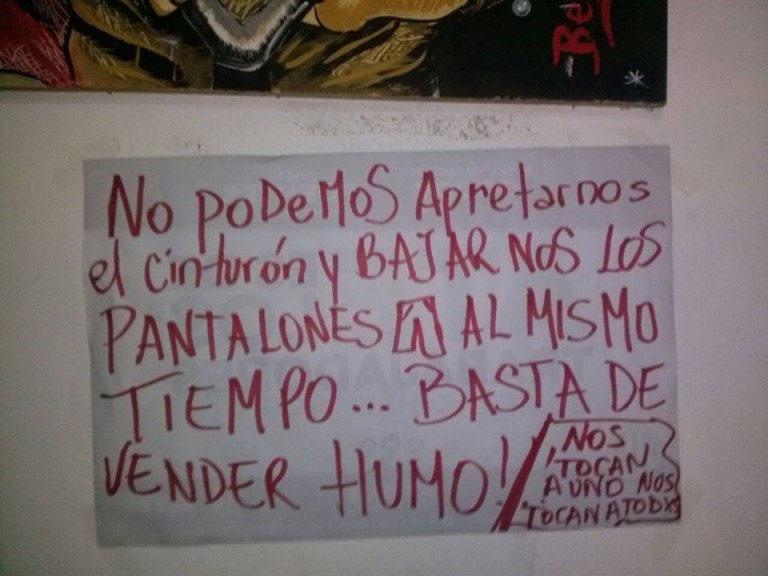 Be
No PoDeMoS Apretarnos
el cinturón y BAJAR NOS LOS
PANTALONES AL MISMO
TIEMPO... BASTA DE
VENDER HUMO!
¡NOS
TOCAN
A UNO NOS
TOCAN A TODXS